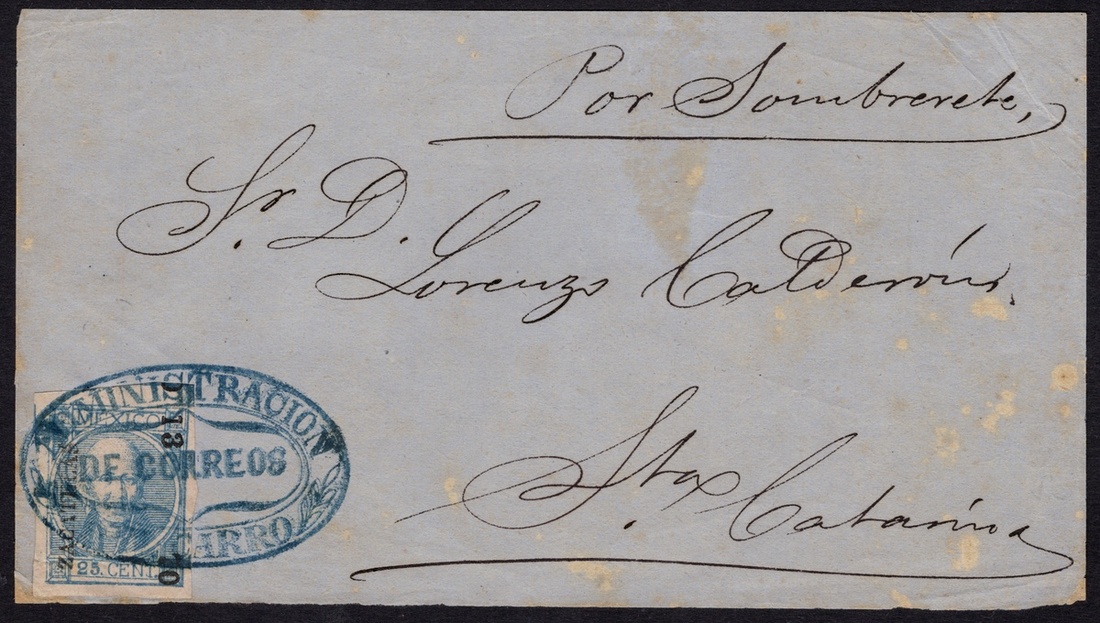 Por Sombrerete,
Sr. D.
Lorenzo Calderón.
Sta Catarina
ADMINISTRACION
DE CORREOS
MEXICO
ZACATECAS
13
70
25. CENT.